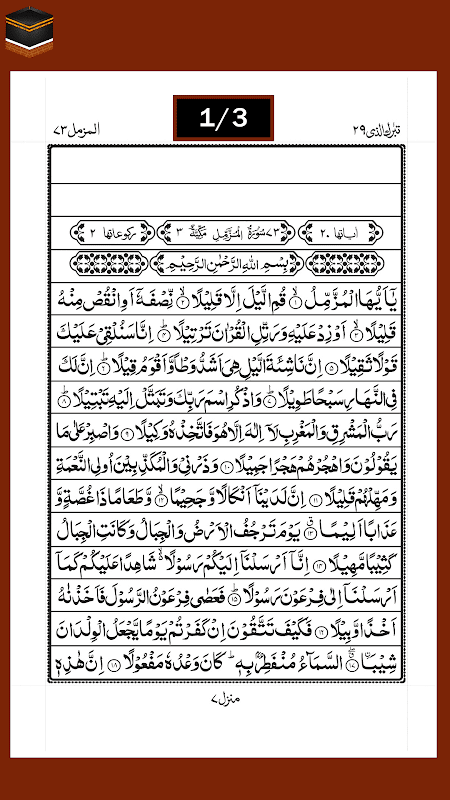 1/3
المزمل ٧٣
تبٰرك الذى ٢٩
اٰیاتها ٢٠
٧٣ سُوْرَةُ الْمُزَّمِّلِ مَكِّيَّةٌ ٣
ركوعاتها ٢
بِسْمِ اللّٰهِ الرَّحْمٰنِ الرَّحِيْمِ
يٰۤاَيُّهَا الْمُزَّمِّلُ ۙ‏ ﴿١﴾ قُمِ الَّيْلَ اِلَّا قَلِيْلًا ۙ‏ ﴿٢﴾ نِّصْفَهٗۤ اَوِ انْقُصْ مِنْهُ
قَلِيْلًا ۙ‏ ﴿٣﴾ اَوْ زِدْ عَلَيْهِ وَرَتِّلِ الْقُرْاٰنَ تَرْتِيْلًا ؕ‏ ﴿٤﴾ اِنَّا سَنُلْقِيْ عَلَيْكَ
قَوْلًا ثَقِيْلًا ﴿٥﴾ اِنَّ نَاشِئَةَ الَّيْلِ هِيَ اَشَدُّ وَطْاً وَّاَقْوَمُ قِيْلًا ؕ‏ ﴿٦﴾ اِنَّ لَكَ
فِي النَّهَارِ سَبْحًا طَوِيْلًا ؕ‏ ﴿٧﴾ وَاذْكُرِ اسْمَ رَبِّكَ وَتَبَتَّلْ اِلَيْهِ تَبْتِيْلًا ؕ‏ ﴿٨﴾
رَبُّ الْمَشْرِقِ وَالْمَغْرِبِ لَاۤ اِلٰهَ اِلَّا هُوَ فَاتَّخِذْهُ وَكِيْلًا ﴿٩﴾ وَاصْبِرْ عَلٰى مَا
يَقُوْلُوْنَ وَاهْجُرْهُمْ هَجْرًا جَمِيْلًا ﴿١٠﴾ وَذَرْنِيْ وَالْمُكَذِّبِيْنَ اُولِي النَّعْمَةِ
وَمَهِّلْهُمْ قَلِيْلًا ﴿١١﴾ اِنَّ لَدَيْنَاۤ اَنْكَالًا وَّجَحِيْمًا ۙ‏ ﴿١٢﴾ وَّطَعَامًا ذَا غُصَّةٍ وَّ
عَذَابًا اَلِيْمًا ﴿١٣﴾ يَوْمَ تَرْجُفُ الْاَرْضُ وَالْجِبَالُ وَكَانَتِ الْجِبَالُ
كَثِيْبًا مَّهِيْلًا ﴿١٤﴾ اِنَّاۤ اَرْسَلْنَاۤ اِلَيْكُمْ رَسُوْلًا ۙ شَاهِدًا عَلَيْكُمْ كَمَاۤ
اَرْسَلْنَاۤ اِلٰى فِرْعَوْنَ رَسُوْلًا ؕ‏ ﴿١٥﴾ فَعَصٰى فِرْعَوْنُ الرَّسُوْلَ فَاَخَذْنٰهُ
اَخْذًا وَّبِيْلًا ﴿١٦﴾ فَكَيْفَ تَتَّقُوْنَ اِنْ كَفَرْتُمْ يَوْمًا يَّجْعَلُ الْوِلْدَانَ
شِيْبَا ﴿١٧﴾ السَّمَآءُ مُنْفَطِرٌۢ بِهٖ ؕ كَانَ وَعْدُهٗ مَفْعُوْلًا ﴿١٨﴾ اِنَّ هٰذِهٖ
منزل ٧